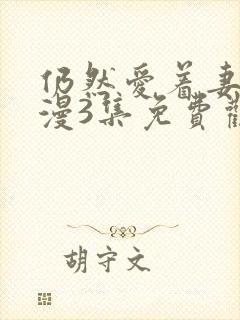 仍然愛着妻
漫3集免費
胡守文